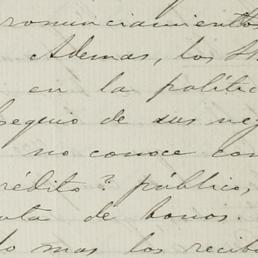 ronunciamientos
Ademas, los
en la politic
sequio de sus neg
no conoce con
rédito? público,
ata de bonos.
do mas los recibo